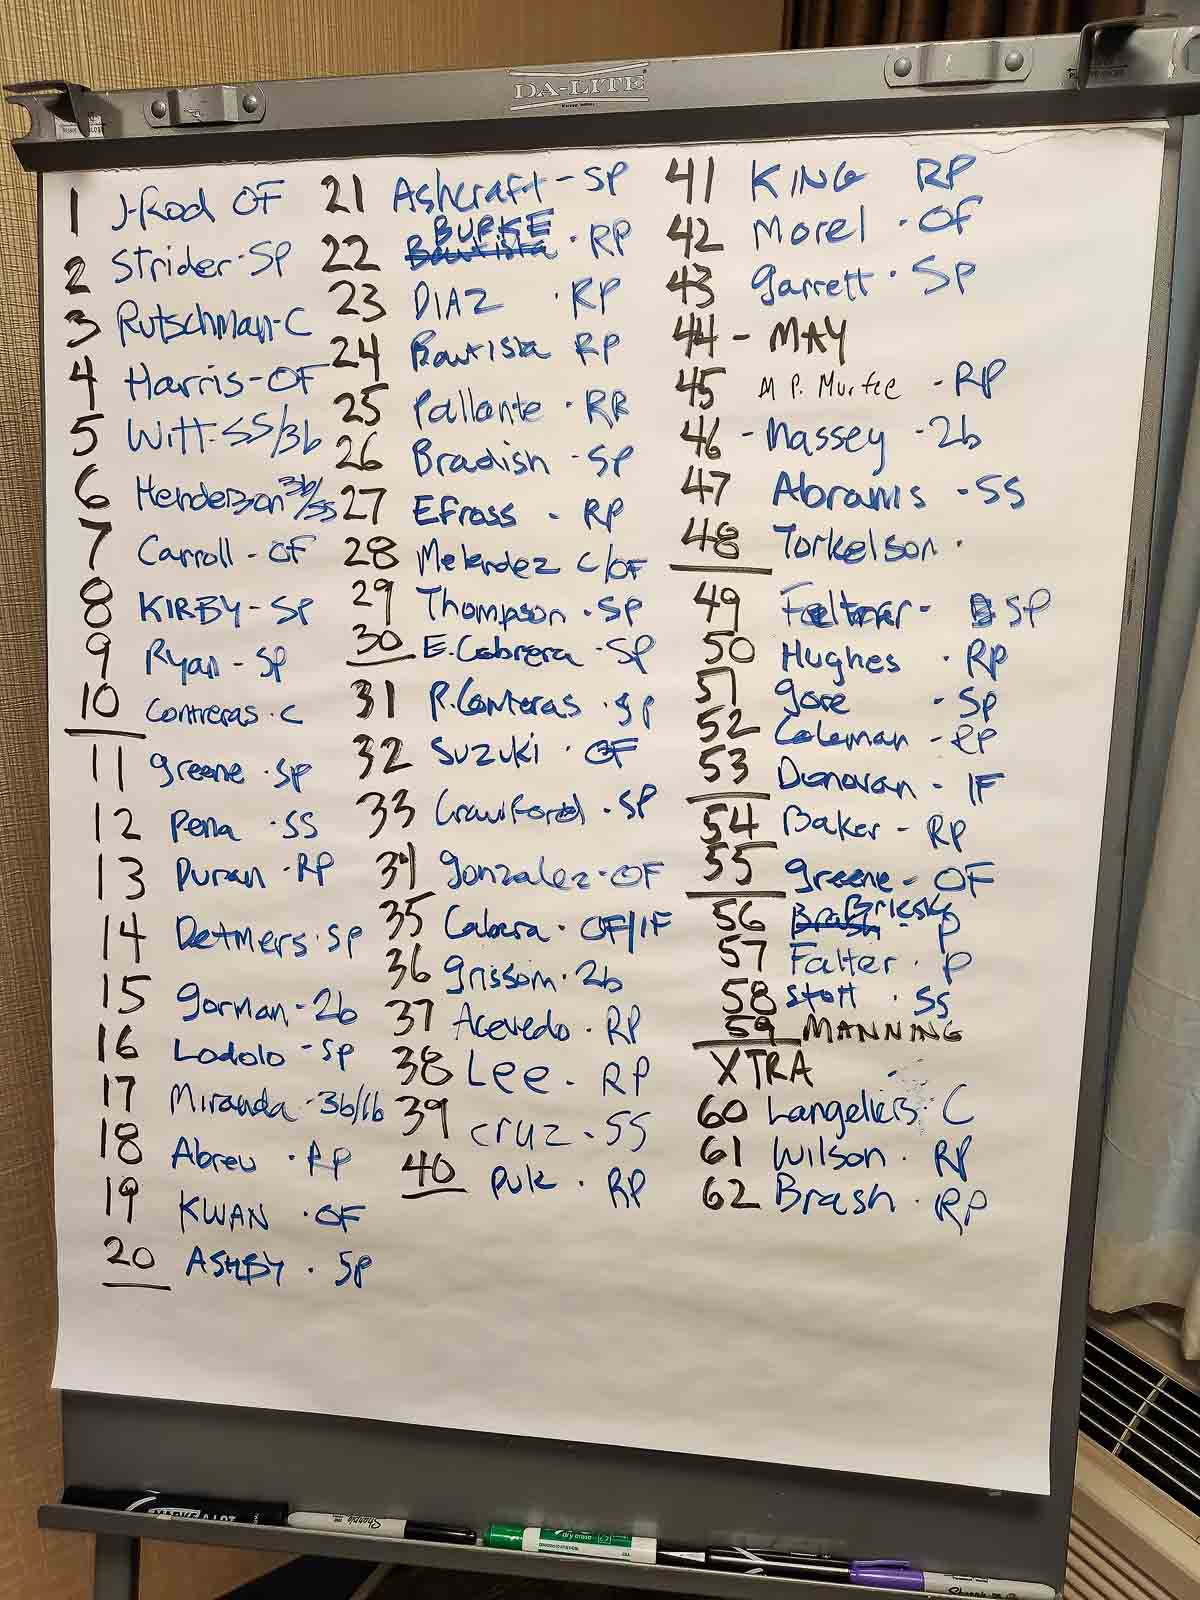 DA-LITE
1 J-Rod OF
2 Strider - SP
3 Rutschman - C
4 Harris - OF
5 Witt - SS/3b
6 Henderson 3b/SS
7 Carroll - OF
8 KIRBY - SP
9 Ryan - SP
10 Contreras . C
11 Greene . SP
12 Pena . SS
13 Duran . RP
14 Detmers . SP
15 Gorman - 2b
16 Lodolo - SP
17 Miranda - 3b/1b
18 Abreu . RP
19 KWAN . OF
20 ASHBY . SP
21 Ashcraft - SP
22 Bautista BURKE . RP
23 DIAZ . RP
24 Bautista RP
25 Pallante . RP
26 Bradish - SP
27 Efross - RP
28 Melendez C/OF
29 Thompson . SP
30 E. Cabrera . SP
31 R. Conteras . SP
32 Suzuki . OF
33 Crawford . SP
34 Gonzalez - OF
35 Cabera . OF/IF
36 Grissom . 2b
37 Acevedo . RP
38 Lee . RP
39 Cruz . SS
40 Puk . RP
41 KING RP
42 Morel . OF
43 Garrett . SP
44 - MAY
45 P. Murfee - RP
46 - Massey - 2b
47 Abrams - SS
48 Torkelson .
49 - SP
50 Hughes . RP
51 Gore - SP
52 Coleman - RP
53 Donovan - IF
54 Baker - RP
55 Greene - OF
56 Brash Briesk - P
57 Falter . P
58 Stott . SS
59 MANNING
XTRA
60 Langeliers . C
61 Wilson . RP
62 Brash . RP
MARKS-A-LOT
Sharpie
dry erase
Sharpie